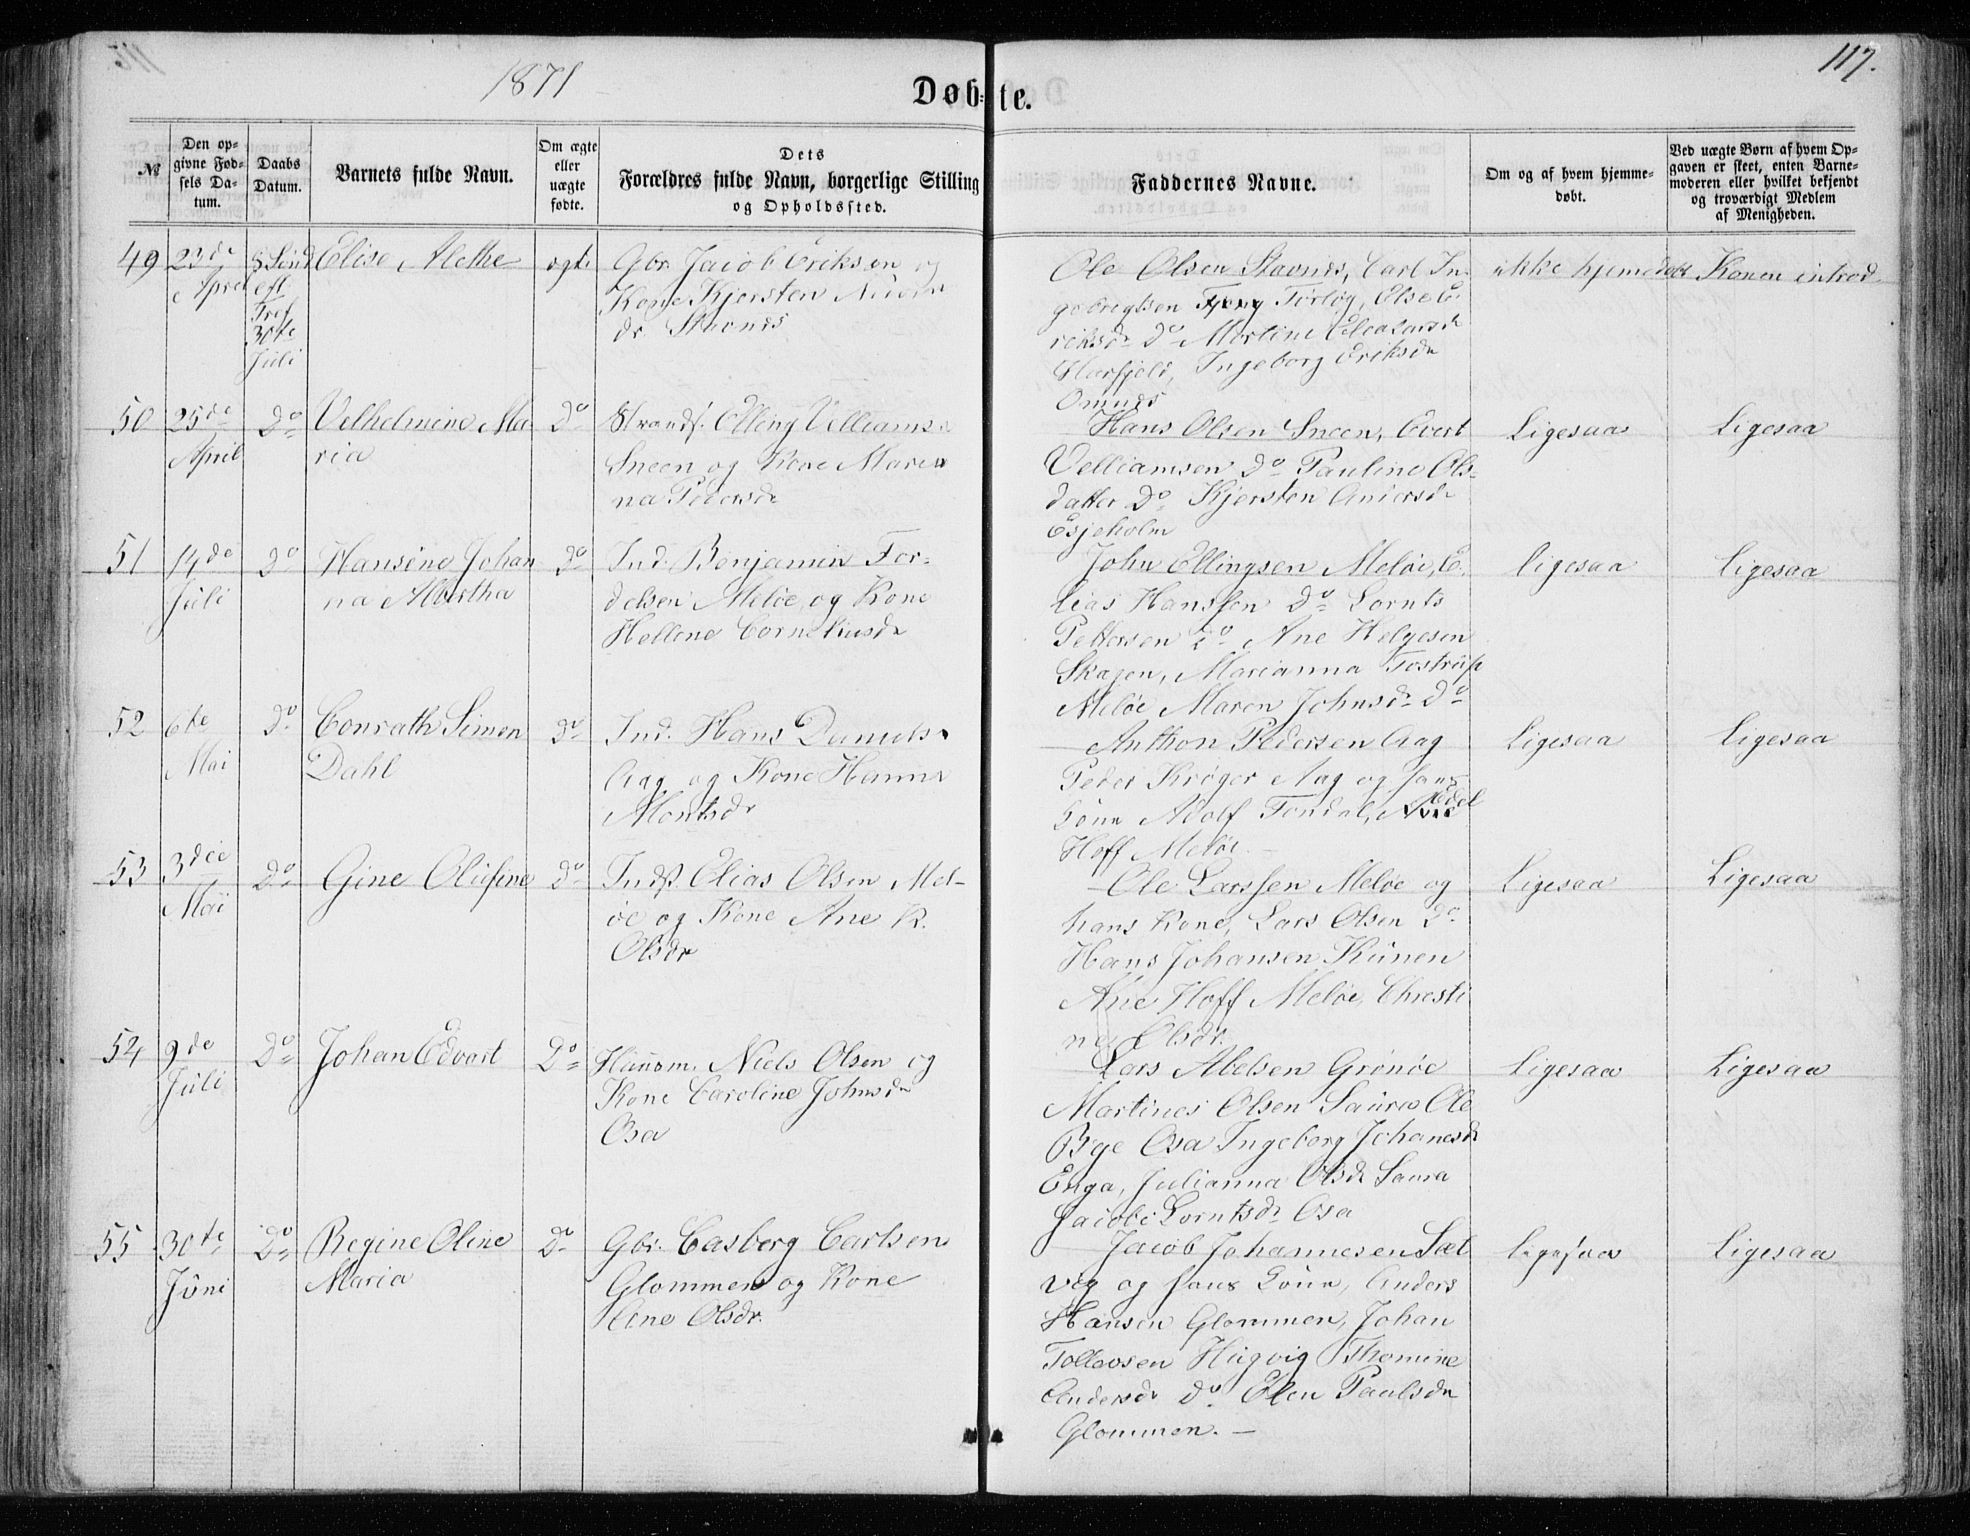 1871
117.
Døb-te.
№
Den op-
givne Fød-
sels Da-
tum.
Daabs
Datum.
Barnets fulde Navn.
Om ægte
eller
uægte
fødte.
Dets
Forældres fulde Navn, borgerlige Stilling
og Opholdssted.
Faddernes Navne.
Om og af hvem hjemme-
døbt.
Ved uægte Børn af hvem Op-
gaven er skeet, enten Barne-
moderen eller hvilket bekjendt
og troværdigt Medlem
af Menigheden.
49
23de
April
8 Sönd
eft
Tref
30te
Juli
Elise Alethe
ægte
Gbr. Jacob Eriksen og
Kone Kjersten
dr. Stavnes
Ole Olsen Stavnes, Carl In-
gebregtsen Tørløg, Else E-
riksdr Do Martine Eleasardr
Harfjeld, Ingeborg Eriksdr
Omnes
ikke hjemedøbt
Konen introd.
50
25de
April
Do
Velhelmine Ma
ria
Do
Strands. Elling Velliams.
Sneen og Kone Maren
na Pedersdr
Hans Olsen Sneen, Evert
Velliamsen Do Pauline Ols-
datter Do Kjersten Andersdr
Esjeholm
Ligesaa
Ligesaa
51
14de
Juli
Do
Hansine Johan
na Martha
Do
Ind. Benjamin Tor-
delsen Meløe og Kone
Hellene Corneliusdr
John Ellingsen Meløe, E-
lias Hanssen Do Lornts
Pettersen Do Ane Helgesen
Skagen, Marianna Tostrup
Meløe Maren Johnsdr Do
ligesaa
Ligesaa
52
6te
Mai
Do
Conrath Simon
Dahl
Do
Ind. Hans Daniels.
Aag og Kone Hanna
Montsdr
Anthon Pedersen Aag
Peder Krøger Aag og hans
Sønn Adolf Tondal, Edel
Hoff Meløe. –
Ligesaa
Ligesaa
53
3die
Mai
Do
Gine Olufine
Do
Inds. Elias Olsen Mel-
øe og Kone Ane K.
Olsdr
Ole Larssen Meløe og
hans Kone, Lars Olsen Do
Hans Johansen Kunen
Ane Hoff Meløe, Christi
ne Olsdr.
Ligesaa
Ligesaa
54
9de
Juli
Do
Johan Edvart
Do
Huusm. Niels Olsen og
Kone Caroline Johnsdr
Osa
Lars Abelsen Grønøe
Martines Olsen Saura Ole
Bye Osa Ingeborg Johanesdr
Enga, Julianna Olsdr Saura
Jacobi Lorntsdr Osa
Ligesaa
Ligesaa
55
30te
Juni
Do
Regine Oline
Maria
Do
Gbr. Casberg Carlsen
Glommen og Kone
Ane Olsdr.
Jacob Johannesen Sæt
vig og hans Kone, Anders
Hansen Glommen, Johan
Tollevsen Hugvig Thomine
Andersdr Do. Elen Paulsdr
Glommen. –
Ligesaa
Ligesaa